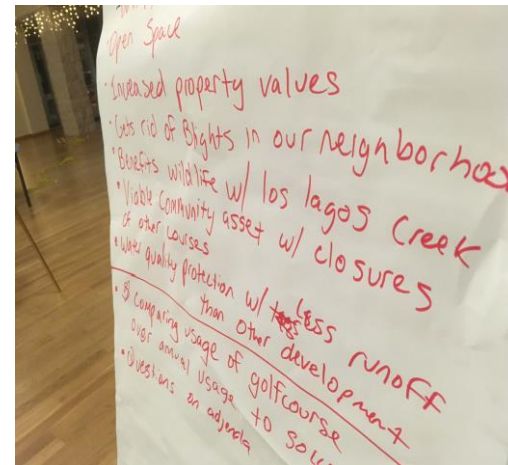 Open Space
• Increased property values
• Gets rid of Blights in our neighborhoo
• Benefits wildlife w/ los lagos Creek
• Viable Community asset w/ closures
of other courses
• Water quality protection w/ Less runoff
than other development
• Comparing usage of golfcourse
over annual usage to
• Questions on adjenda